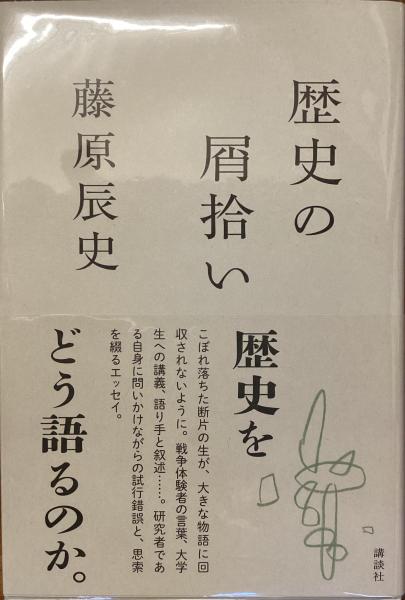 歴史の
屑拾い
藤原辰史
歴史を
どう語るのか。
こぼれ落ちた断片の生が、大きな物語に回
収されないように。戦争体験者の言葉、大学
生への講義、語り手と叙述……。研究者であ
る自身に問いかけながらの試行錯誤と、思索
を綴るエッセイ。
講談社